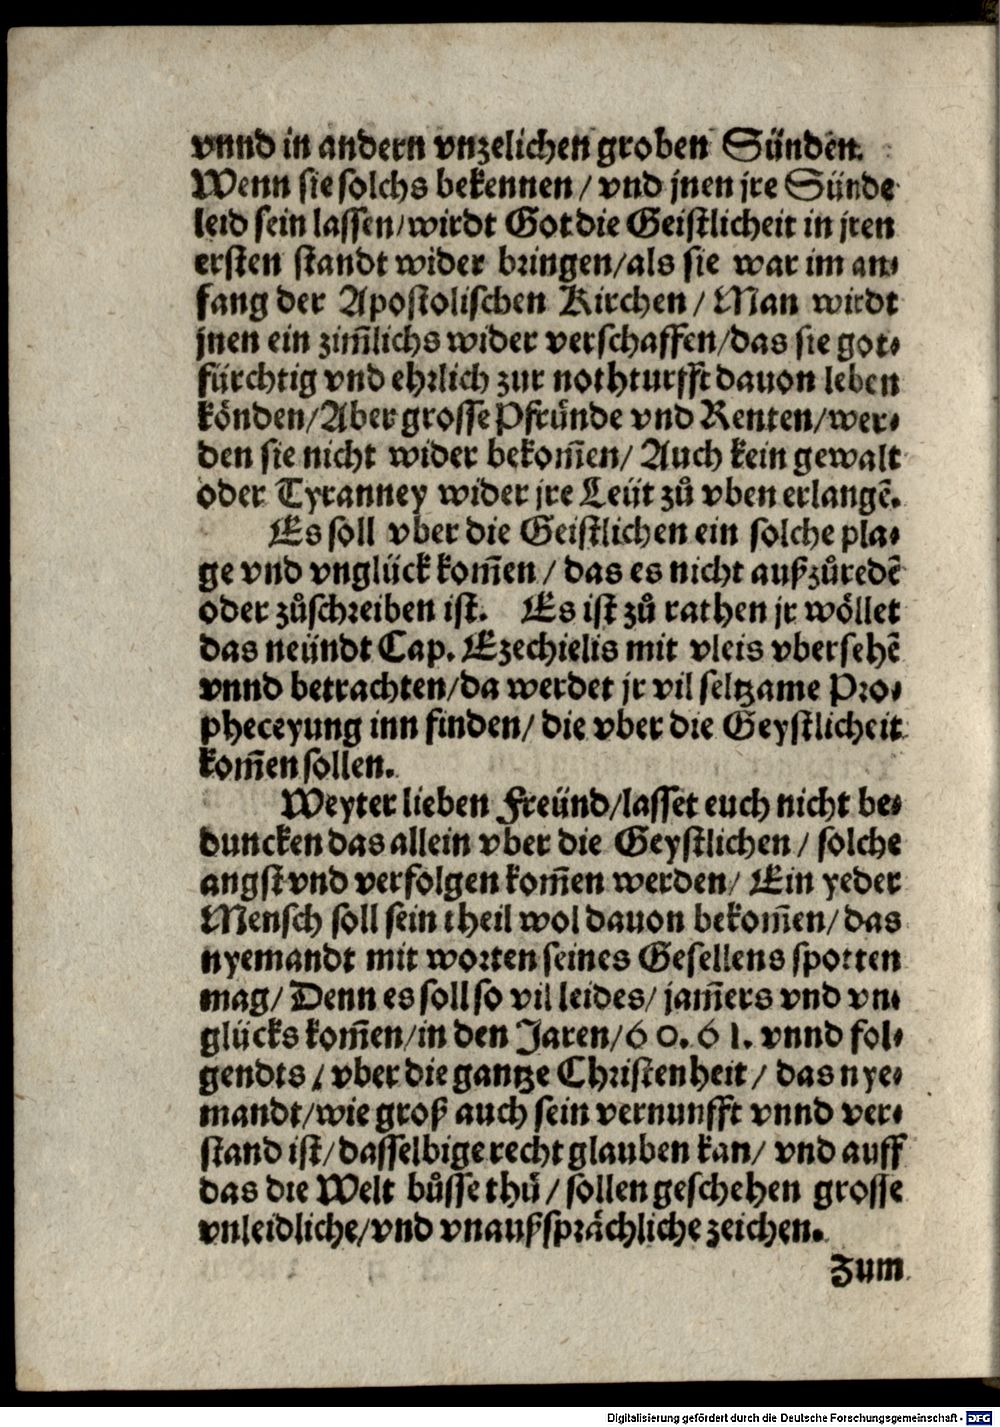 vnnd in andern vnzelichen groben Sünden.
Wenn sie solchs bekennen / vnd jnen jre Sünde
leid sein lassen/wirdt Got die Geistlicheit in jren
ersten standt wider bringen/als sie war im an⸗
fang der Apostolischen Kirchen / Man wirdt
jnen ein zim̃lichs wider verschaffen/das sie got⸗
fürchtig vnd ehrlich zur nothturfft dauon leben
könden/Aber grosse Pfründe vnd Renten/wer⸗
den sie nicht wider bekom̃en/ Auch kein gewalt
oder Tyranney wider jre Leüt zů vben erlangẽ.
Es soll vber die Geistlichen ein solche pla⸗
ge vnd vnglück kom̃en / das es nicht außzůredẽ
oder zůschreiben ist. Es ist zů rathen jr wöllet
das neündt Cap. Ezechielis mit vleis vbersehẽ
vnnd betrachten/da werdet jr vil seltzame Pro⸗
pheceyung inn finden/ die vber die Geystlicheit
kom̃en sollen.
Weyter lieben Freünd/lasset euch nicht be⸗
duncken das allein vber die Geystlichen / solche
angst vnd verfolgen kom̃en werden/ Ein yeder
Mensch soll sein theil wol dauon bekom̃en/ das
nyemandt mit worten seines Gesellens spotten
mag/ Denn es soll so vil leides/ jam̃ers vnd vn⸗
glücks kom̃en/in den Jaren/60. 61. vnnd fol⸗
gendts / vber die gantze Christenheit / das nye⸗
mandt/wie groß auch sein vernunfft vnnd ver⸗
stand ist/dasselbige recht glauben kan/ vnd auff
das die Welt bůsse thů / sollen geschehen grosse
vnleidliche/vnd vnaußsprächliche zeichen.
Zum
Digitalisierung gefördert durch die Deutsche Forschungsgemeinschaft - DFG